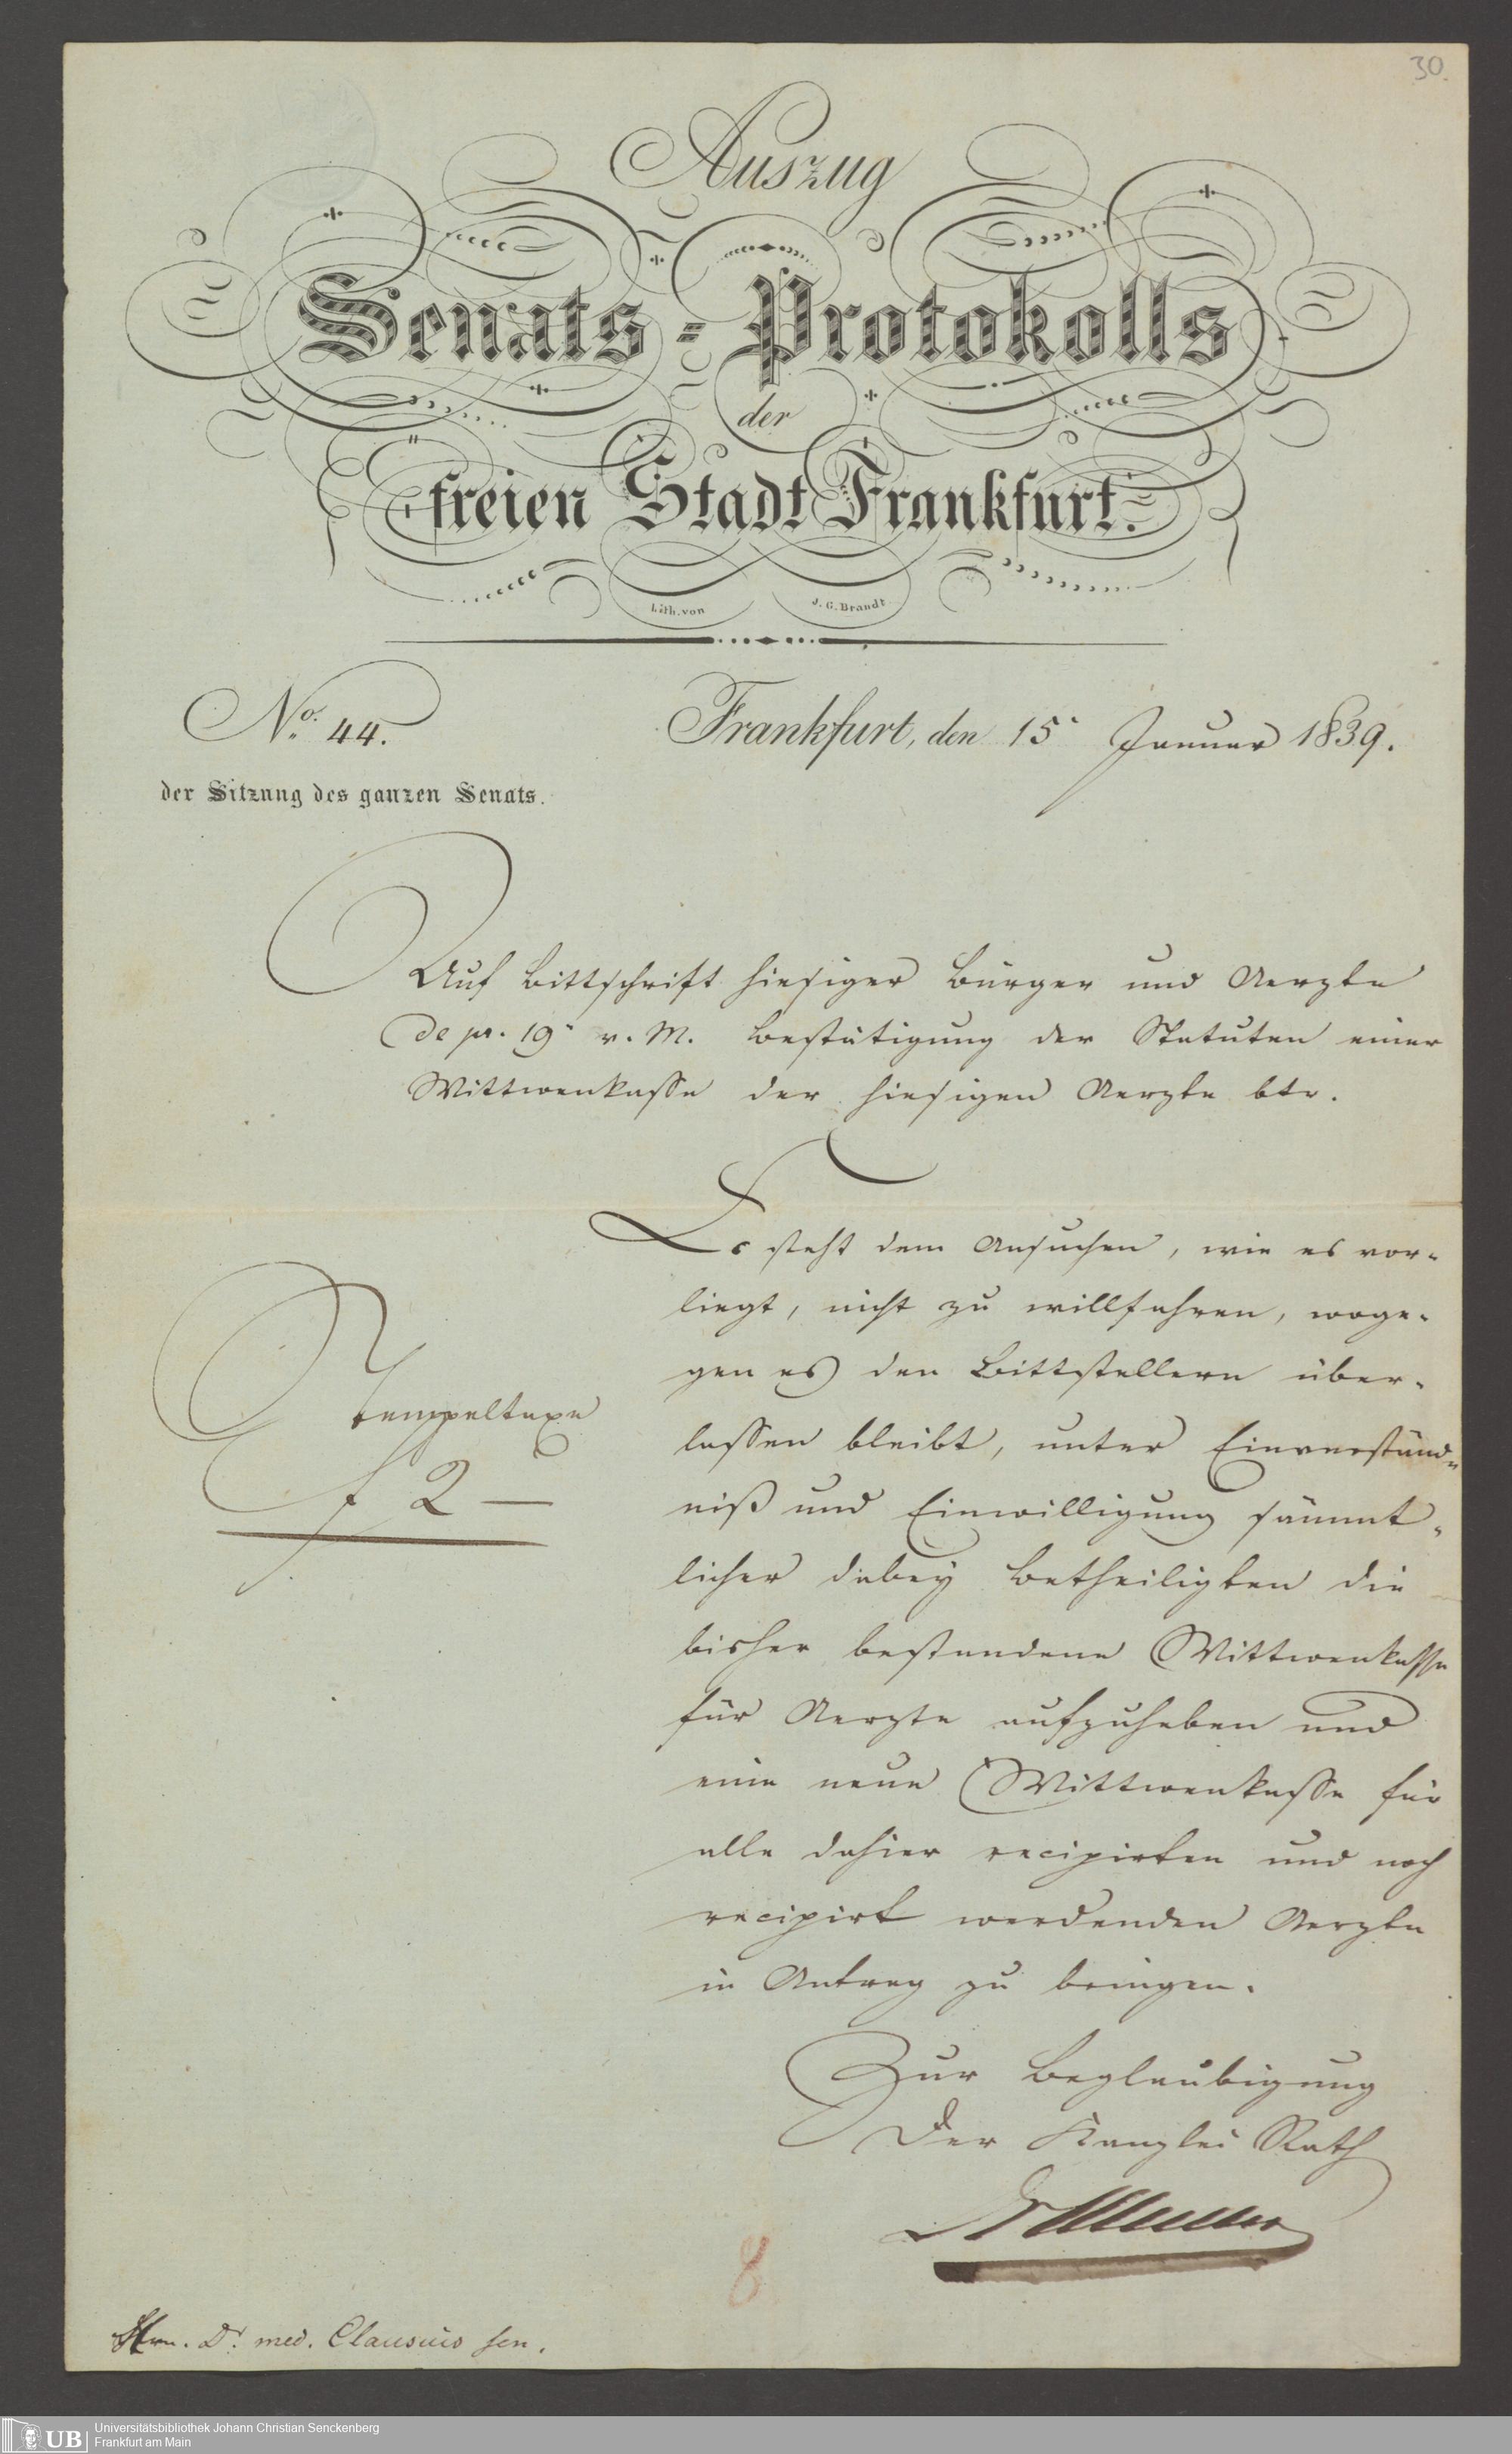 30.
Auszug
Senats-Protokolls
der
freien Stadt Frankfurt.
Lith. von J. G. Brandt
No. 44.
Frankfurt, den 15 Januar 1839.
der Sitzung des ganzen Senats.
Auf Bittschrift hiesiger Bürger und Aerzte
de pr. 19 v. M. Bestätigung der Statuten einer
Wittwenkasse der hiesigen Aerzte btr.
Es steht dem Ansuchen, wie es vor-
liegt, nicht zu willfahren, woge-
gen es den Bittstellern über-
lassen bleibt, unter Einverständ-
niß und Einwilligung sämmt-
licher dabey Betheiligten die
bisher bestandene Wittwenkasse
für Aerzte aufzuheben und
eine neue Wittwenkasse für
alle dahier recipirten und noch
recipirt werdenden Aerzte
in Antrag zu bringen.
Stempeltaxe
f 2 —
Zur Beglaubigung
Der Kanzlei Rath
8
Hrn. Dr. med. Clausius sen.
UB
Universitätsbibliothek Johann Christian Senckenberg
Frankfurt am Main